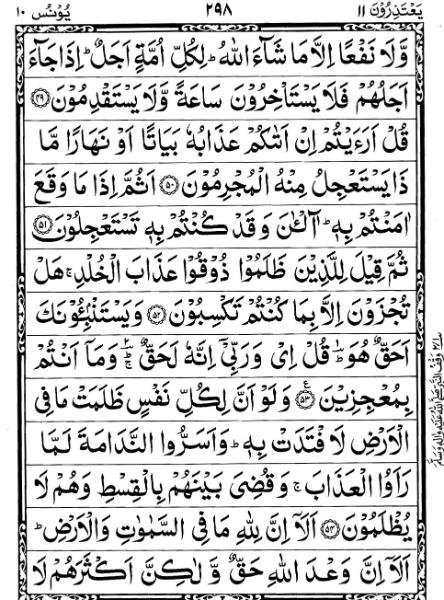 يَعْتَذِرُوْنَ ١١ ٢٩٨ يُوْنُسَ ١٠
وَّلَا نَفْعًا اِلَّا مَا شَآءَ اللّٰهُ ؕ لِكُلِّ اُمَّةٍ اَجَلٌ ؕ اِذَا جَآءَ
اَجَلُهُمْ فَلَا يَسْتَاْخِرُوْنَ سَاعَةً وَّلَا يَسْتَقْدِمُوْنَ ﴿٤٩﴾
قُلْ اَرَءَيْتُمْ اِنْ اَتٰىكُمْ عَذَابُهٗ بَيَاتًا اَوْ نَهَارًا مَّا
ذَا يَسْتَعْجِلُ مِنْهُ الْمُجْرِمُوْنَ ﴿٥٠﴾ اَثُمَّ اِذَا مَا وَقَعَ
اٰمَنْتُمْ بِهٖ ؕ آٰلْـٰٔنَ وَ قَدْ كُنْتُمْ بِهٖ تَسْتَعْجِلُوْنَ ﴿٥١﴾
ثُمَّ قِيْلَ لِلَّذِيْنَ ظَلَمُوْا ذُوْقُوْا عَذَابَ الْخُلْدِ ۚ هَلْ
تُجْزَوْنَ اِلَّا بِمَا كُنْتُمْ تَكْسِبُوْنَ ﴿٥٢﴾ وَيَسْتَنْۢبِـُٔوْنَكَ
اَحَقٌّ هُوَ ؕ قُلْ اِيْ وَرَبِّيْۤ اِنَّهٗ لَحَقٌّ ؕۚ وَمَاۤ اَنْتُمْ
بِمُعْجِزِيْنَ ﴿٥٣﴾ ع وَلَوْ اَنَّ لِكُلِّ نَفْسٍ ظَلَمَتْ مَا فِي
الْاَرْضِ لَا فْتَدَتْ بِهٖ ؕ وَاَسَرُّوا النَّدَامَةَ لَمَّا
رَاَوُا الْعَذَابَ ۚ وَ قُضِيَ بَيْنَهُمْ بِالْقِسْطِ وَهُمْ لَا
يُظْلَمُوْنَ ﴿٥٤﴾ اَلَاۤ اِنَّ لِلّٰهِ مَا فِي السَّمٰوٰتِ وَالْاَرْضِ ؕ
اَلَاۤ اِنَّ وَعْدَ اللّٰهِ حَقٌّ وَّ لٰكِنَّ اَكْثَرَهُمْ لَا
وقف النبي صلى الله عليه واله وسلم